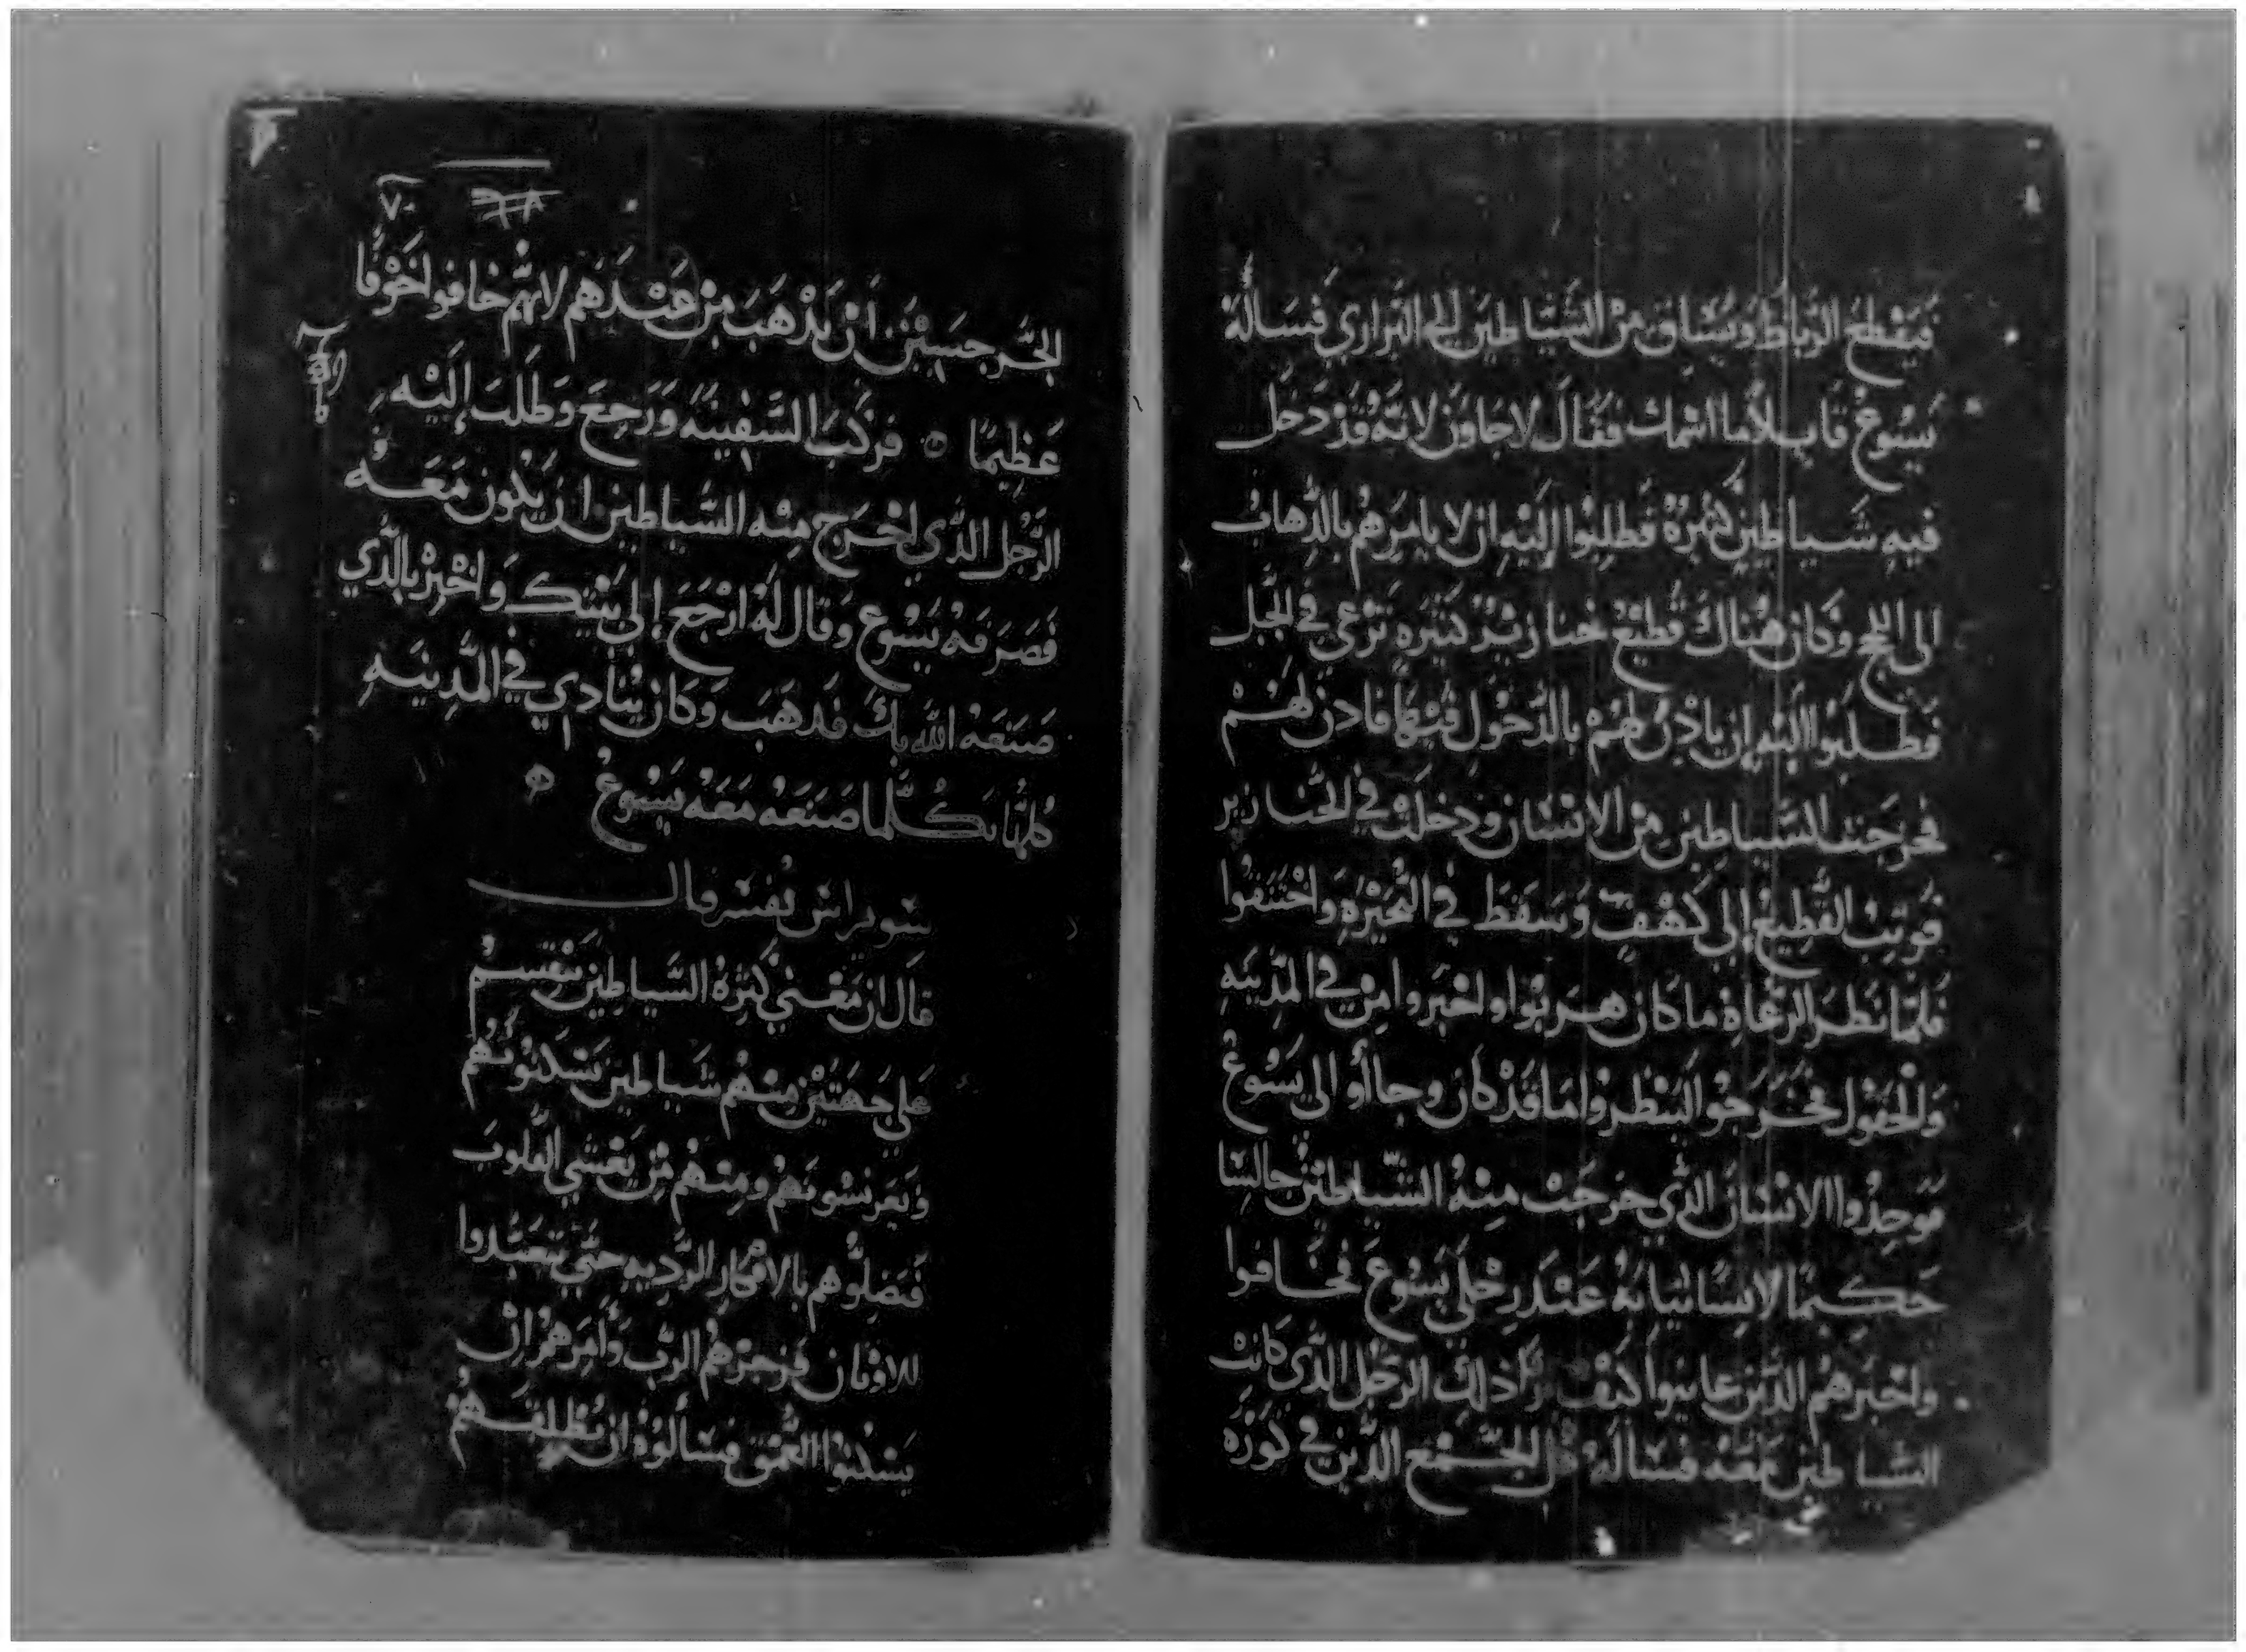 فيَقْطعُ الرّباطَ ويُسَاق مِنْ الشَيَاطين إلى البَراري فَسَالُه
يَسُوعُ قايلاً ما اسْمك فقَالَ لاجاوَن لانّهُ قَدْ دَخَل
فيهِ شَياطين كثيرَةٌ فَطلِبُوا إليْهِ ان لا يامرَهُم بالذّهابُ
الى اللجج وكان هُناكَ قَطيعُ خنازيْر كثيره تَرْعي في الجَبل
فَطلبَوا اليْه ان ياذِن لَهُمْ بالدّخُول فيْهَا فاذن لَهُمْ
فخرجَت الشَياطِين مِنَ الانْسَان ودَخلت في الخنازير
فَوثبَ القطِيعُ إلى كَهْفٍ وَسَقَطَ في البُحَيْرَهِ وَاخْتَنَقُوا
فَلمّا نَظَرَ الرّعَاةِ ما كان هرَبوا واخْبَروا مِنْ في المَدِينَهِ
وَالحقوُل فخَرَجُوا ليَنْظروا مَا قَدْ كان وجاأو الى يَسُوعُ
فوَجِدُوا الانْسَانَ الذي خرجَتْ مِنْهُ الشّيَاطيْنُ جَالسًا
حَكِيمًا لابسًا ثيابَهُ عَنْدَ رِجْلي يَسُوعَ فخَافوا
واخبَرَهمُ الذين عاينوا كَيْفَ ذلك الرجُل الذي كانت
الشياطين مَعَه فسَاله كل الجَمْع الذين في كَوْرَه
٧٠
الجرجسيين ان يَذْهَبَ مِنْ عَنْدَهم لانّهم خافوا خَوْفًا
عَظِيمًا فركبَ السَّفِينَهُ وَرَجعَ وَطَلَبَ إليْهِ
الرَّجُل الذي اخرَج مِنْه الشَّياطين ان يَكون مَعَهُ
فَصَرَفهُ يَسُوع وَقال لهُ ارْجَعَ إلى بَيْتِك وَاخْبِرْ بالذي
صَنَعَهُ الله بكَ فَدهَبَ وَكان يُنادي في المَدِينَهِ
كلهَا بكُلّما صَنَعَهُ مَعَهُ يَسُوعُ
سويراس يُفسّر قال
قال ان مَعْني كَثرَةُ الشَّياطِين يَنْقَسِمْ
عَلي جِهَتَيْن مِنْهُم شَياطين يَسْكنُونَهُم
ومِنْهُمْ مِنْ يَغْشي القلوبَ
فَيَضِلُوهم بالافكار الرَّديهِ حتَّي يَتعَبَّدوا
للاوْثان فزجَرْهُم الرّبُ وَأمَرهُمْ انْ
يَسْكنُوا العُمْقَ وسَألوهُ ان يُطْلِقَهُمْ